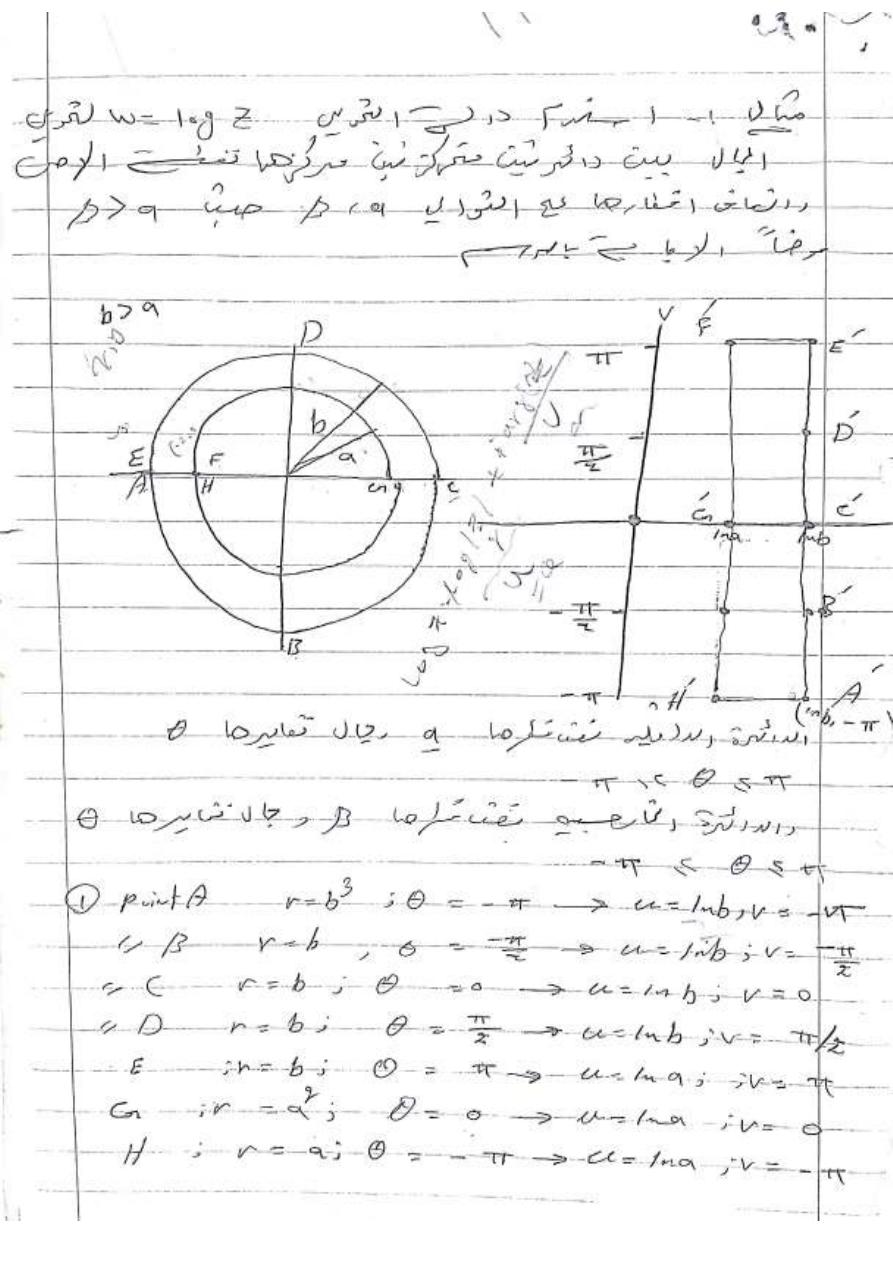 مثال :- استخدم دالة التحويل w = log z لتحويل
المجال بين دائرتين متمركزتين مركزها نقطة الاصل
وانصاف اقطارها على التوالي b , a حيث b > a
موضحاً الاجابة بالرسم
b > a
D
b
a
E
F
A
H
G
a
C
B
V
F′
E′
π
D′
π/2
G′
C′
ln a
ln b
-π/2
B′
-π
H′
A′
(ln b, -π)
الدائرة الداخلية نصف قطرها a ومجال تغايرها θ
-π ≤ θ ≤ π
والدائرة الخارجية نصف قطرها B ومجال تغايرها θ
-π ≤ θ ≤ π
① point A r = b³ ; θ = -π → u = ln b, v = -π
〃 B r = b , θ = -π/2 → u = ln b ; v = -π/2
〃 C r = b ; θ = 0 → u = ln b ; v = 0
〃 D r = b ; θ = π/2 → u = ln b ; v = π/2
E ; r = b ; θ = π → u = ln a ; ; v = π
G ; r = a ; θ = 0 → u = ln a ; v = 0
H ; r = a ; θ = -π → u = ln a ; v = -π